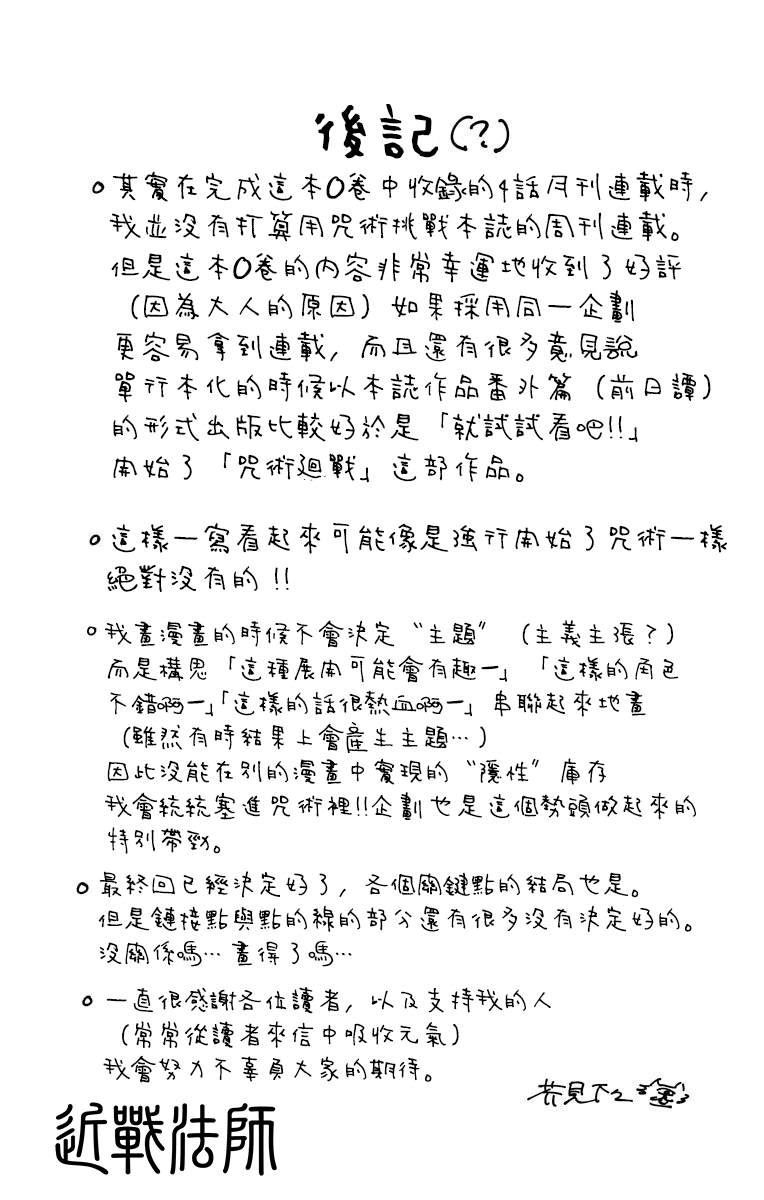 後記(?)
。其實在完成這本0卷中收錄的4話月刊連載時,
我並沒有打算用咒術挑戰本誌的周刊連載。
但是這本0卷的內容非常幸運地收到了好評
(因為大人的原因)如果採用同一企劃
更容易拿到連載,而且還有很多意見說
單行本化的時候以本誌作品番外篇(前日譚)
的形式出版比較好於是「就試試看吧!!」
開始了「咒術廻戰」這部作品。
。這樣一寫看起來可能像是強行開始了咒術一樣
絕對沒有的!!
。我畫漫畫的時候不會決定“主題”(主義主張?)
而是構思「這種展開可能會有趣ー」「這樣的角色
不錯啊ー」「這樣的話很熱血啊ー」串聯起來地畫
(雖然有時結果上會產生主題…)
因此沒能在別的漫畫中實現的“隱性”庫存
我會統統塞進咒術裡!!企劃也是這個勢頭做起來的
特別帶勁。
。最終回已經決定好了,各個關鍵點的結局也是。
但是鏈接點與點的線的部分還有很多沒有決定好的。
沒關係嗎…畫得了嗎…
。一直很感謝各位讀者,以及支持我的人
(常常從讀者來信中吸收元氣)
我會努力不辜負大家的期待。
芥見下々
近戰法師